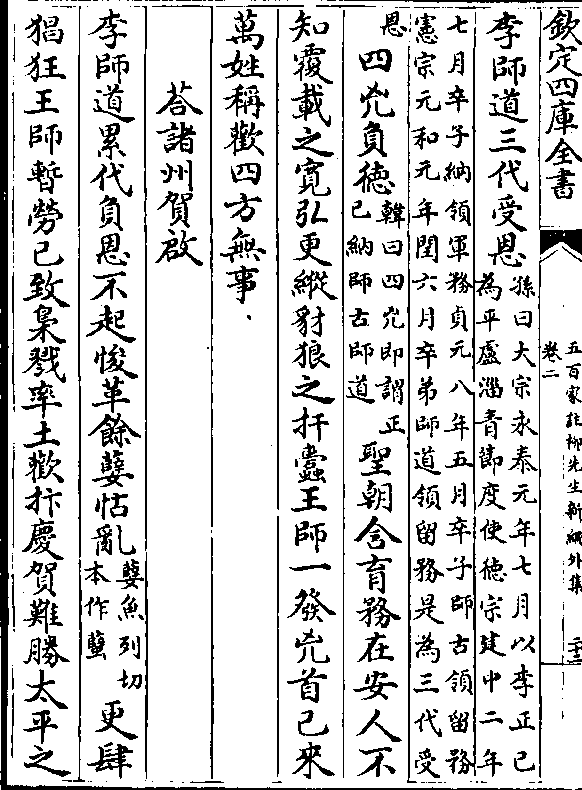 欽定四庫全書
五百家註柳先生新編外集
卷二
二十三
李師道三代受恩
孫曰大宗永泰元年七月以李正已
為平盧淄青節度使德宗建中二年
七月卒子納領軍務貞元八年五月卒子師古領留務
憲宗元和元年閏六月卒弟師道領留務是為三代受
恩
四兇負德
韓曰四兇即謂正
已納師古師道
聖朝含育務在安人不
知覆載之寛弘更縱豺狼之扞蠹王師一發兇首已來
萬姓稱歡四方無事
荅諸州賀啟
李師道累代負恩不起悛革餘孽怙亂
孽魚列切
本作蠥
更肆
猖狂王師暫勞已致梟戮率土歡抃慶賀難勝太平之